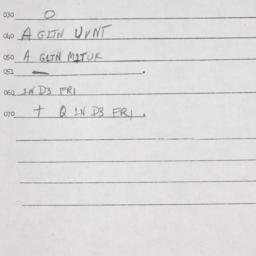 030 O
040 A GLTN UVNT
050 A GLTN MITUK
052 —
060 IN D3 FRI
070 + Q IN D3 FRI.